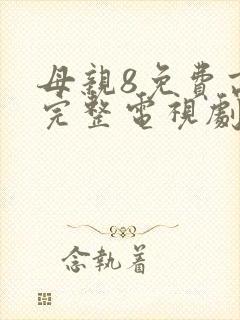 母親8免費高
完整電視劇
念執着